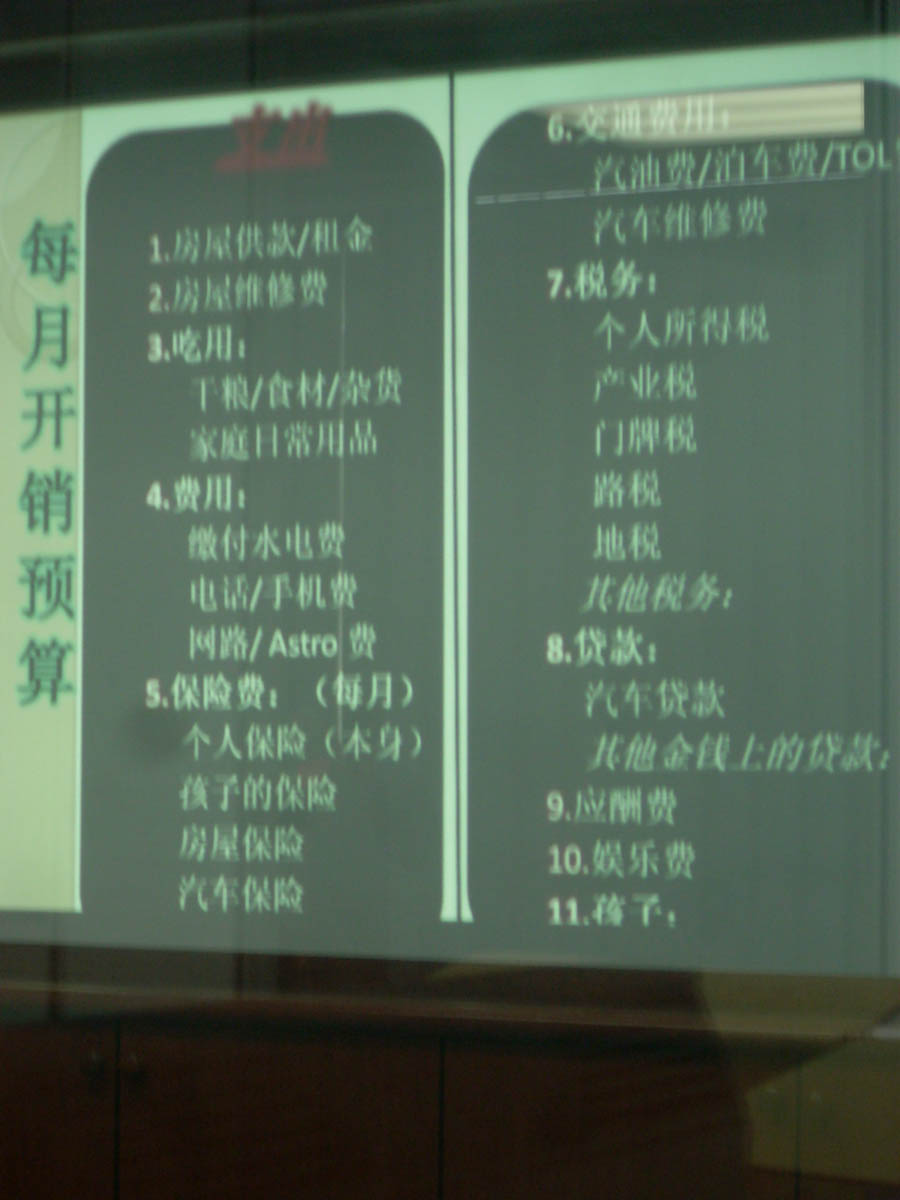 每月开销预算
支出
1.房屋供款/租金
2.房屋维修费
3.吃用：
干粮/食材/杂货
家庭日常用品
4.费用：
缴付水电费
电话/手机费
网路/ Astro 费
5.保险费：（每月）
个人保险（本身）
孩子的保险
房屋保险
汽车保险
6.交通费用：
汽油费/泊车费/TOL
汽车维修费
7.税务：
个人所得税
产业税
门牌税
路税
地税
其他税务：
8.贷款：
汽车贷款
其他金钱上的贷款：
9.应酬费
10.娱乐费
11.孩子：